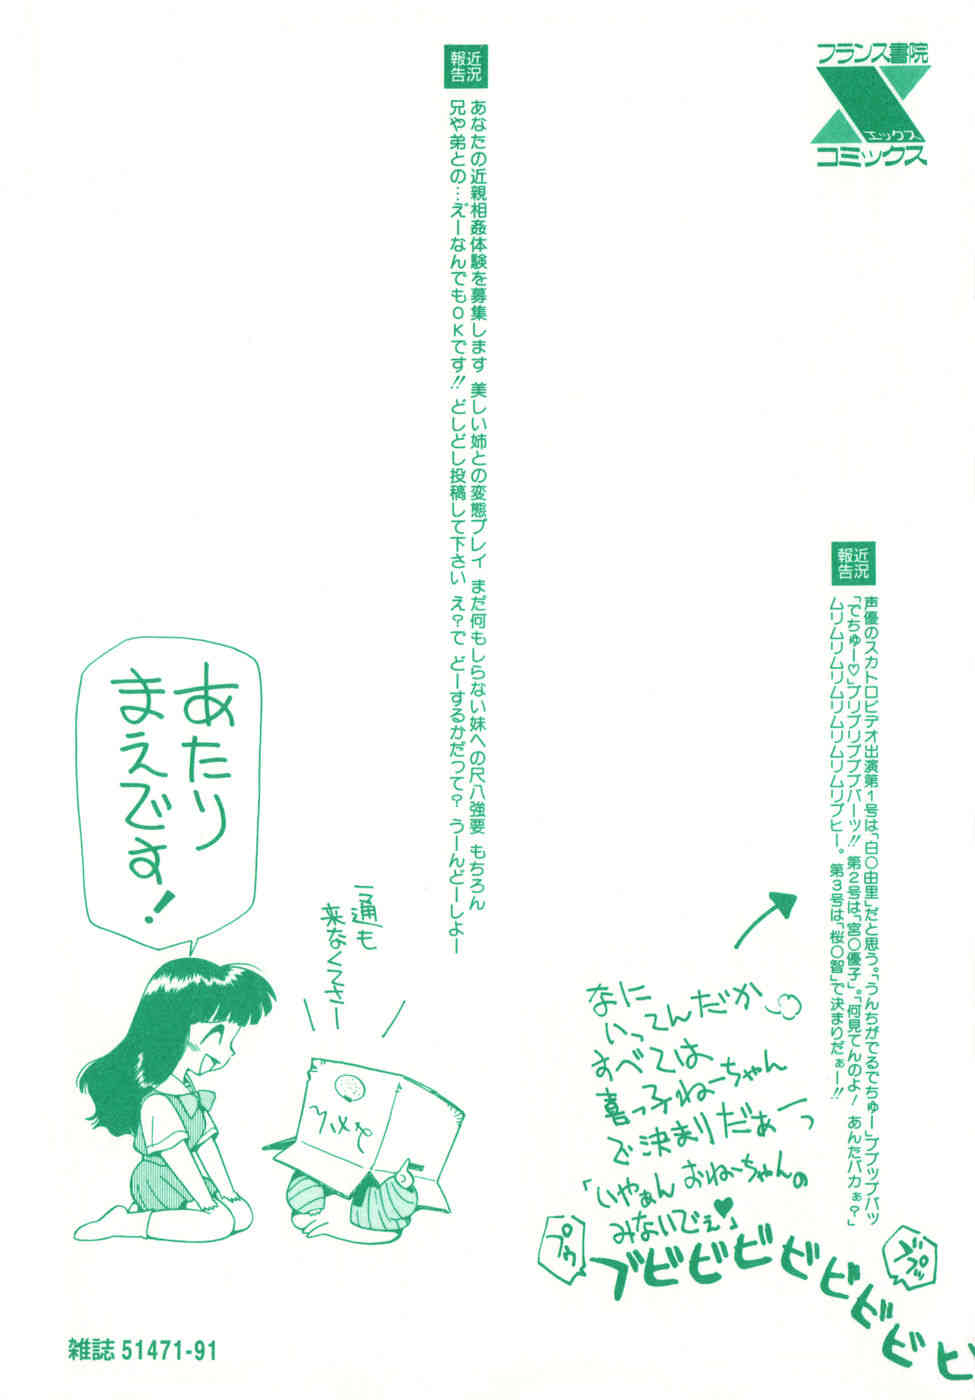 フランス書院
エックス
コミックス
近況
報告
声優のスカトロビデオ出演第1号は、「白○由里」だと思う。「うんちがでるでちゅー」ブブップバッ
「でちゅー♡」ブリブリブブブバーッ!! 第2号は、「宮○優子」。「何見てんのよ！ あんたバカぁ？」
ムリムリムリムリムリムリムリブヒー。 第3号は、「桜○智」で決まりだぁー!!
近況
報告
あなたの近親相姦体験を募集します 美しい姉との変態プレイ まだ何もしらない妹への尺八強要 もちろん
兄や弟との…えーなんでもOKです!! どしどし投稿して下さい え？で どーするかだって？ うーんどーしよー
なに
いってんだか
すべては
喜っ子ねーちゃん
で決まりだぁーっ
「いやぁん おねーちゃんの
みないでぇ♥」
プゥ
ブビビビビビビビビ
ブブッ
一通も
来なくてさー
みかん
あたり
まえです！
雑誌 51471-91